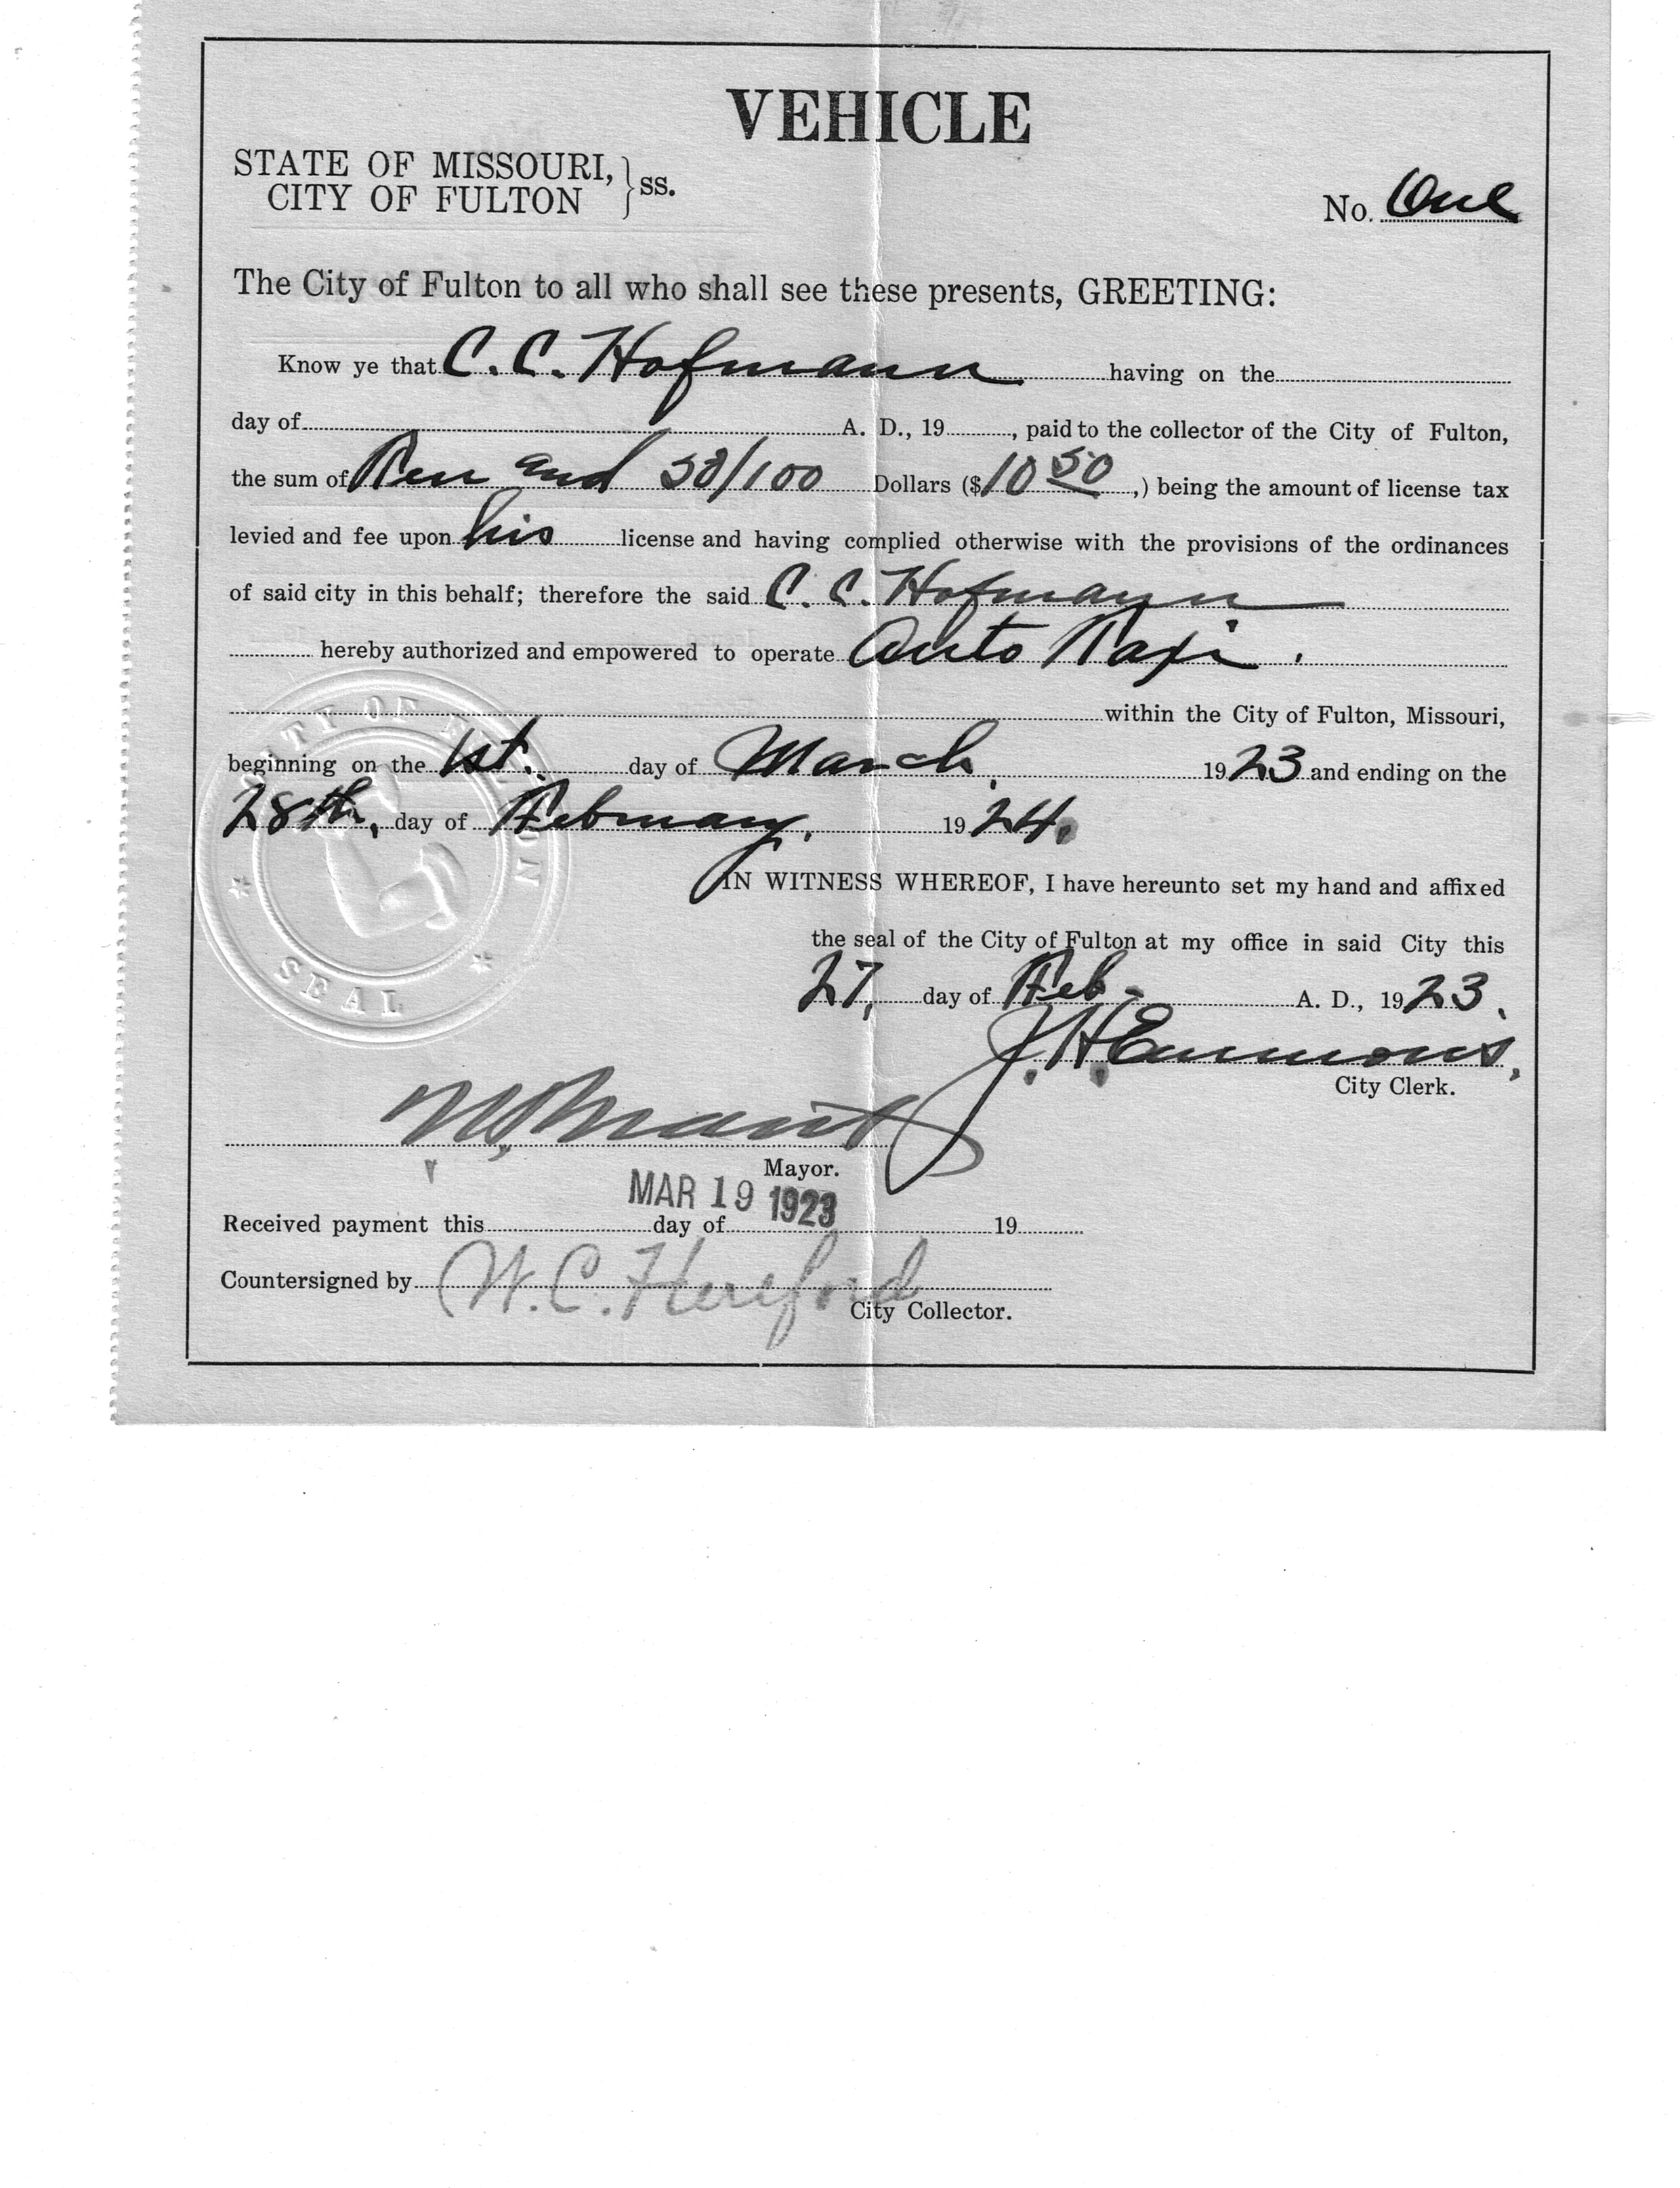 VEHICLE
STATE OF MISSOURI,
CITY OF FULTON } ss.
No. One
The City of Fulton to all who shall see these presents, GREETING:
Know ye that C. C. Hofmann having on the
day of A. D., 19 , paid to the collector of the City of Fulton,
the sum of Ten and 50/100 Dollars ($10 50 ,) being the amount of license tax
levied and fee upon his license and having complied otherwise with the provisions of the ordinances
of said city in this behalf; therefore the said C. C. Hofmann
hereby authorized and empowered to operate Auto Taxi.
within the City of Fulton, Missouri,
beginning on the 1st. day of March, 1923 and ending on the
28th, day of February, 1924.
IN WITNESS WHEREOF, I have hereunto set my hand and affixed
the seal of the City of Fulton at my office in said City this
27, day of Feb - A. D., 1923.
J. H. Emmons,
City Clerk.
Mayor.
MAR 19 1923
Received payment this day of 19
Countersigned by W. C. Hereford
City Collector.
CITY OF FULTON
SEAL